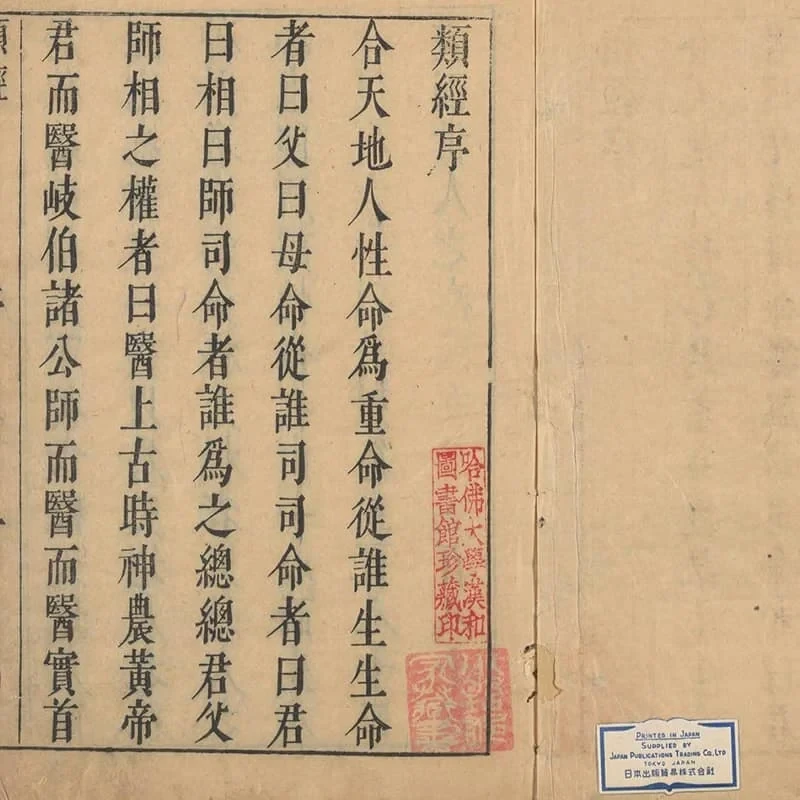 類經序
合天地人性命爲重命從誰生生命
者曰父曰母命從誰司司命者曰君
曰相曰師司命者誰爲之總總君父
師相之權者曰醫上古時神農黃帝
君而醫岐伯諸公師而醫而醫實首
類經
哈佛大學漢和
圖書館珍藏印
PRINTED IN JAPAN
SUPPLIED BY
JAPAN PUBLICATIONS TRADING CO., LTD
TOKYO JAPAN
日本出版貿易株式會社